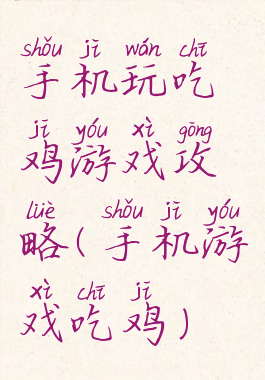 shǒu jī wán chī
手机玩吃
jī yóu xì gōng
鸡游戏攻
lüè shǒu jī yóu
略(手机游
xì chī jī
戏吃鸡)